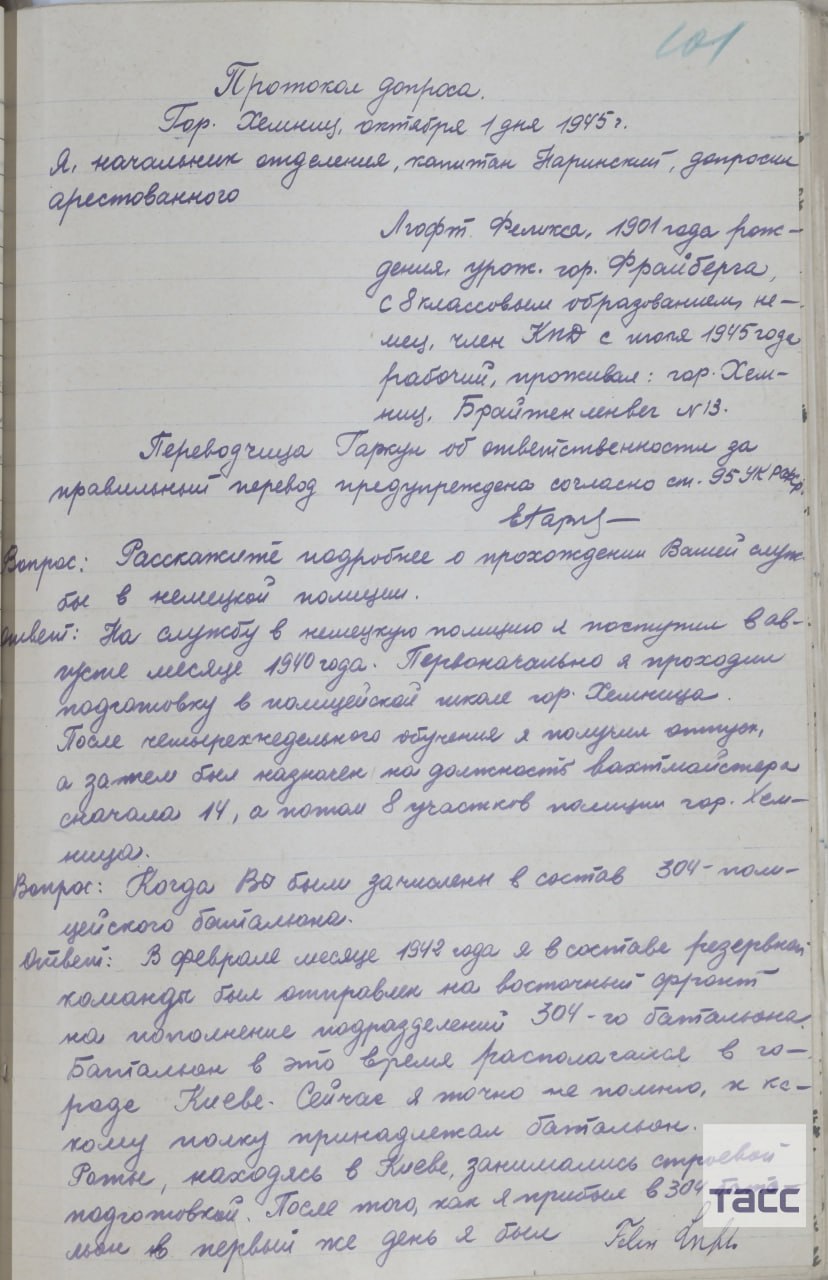 101
Протокол допроса.
Гор. Хемниц, октября 1 дня 1945 г.
Я, начальник отделения, капитан Наринский, допросил
арестованного
Лгофт Феликса, 1901 года рож-
дения, урож. гор. Фрайберга,
с 8 классовым образованием, не-
мец, член КПД с июля 1945 года
рабочий, проживал: гор. Хем-
ниц, Брайтенленвег N 13.
Переводчица Гаркун об ответственности за
правильный перевод предупреждена согласно ст. 95 УК РСФСР.
Вопрос: Расскажите подробнее о прохождении Вашей служ-
бы в немецкой полиции.
Ответ: На службу в немецкую полицию я поступил в ав-
густе месяце 1940 года. Первоначально я проходил
подготовку в полицейской школе гор. Хемница.
После четырехнедельного обучения я получил отпуск,
а затем был назначен на должность вахтмайстера
сначала 14, а потом 8 участков полиции гор. Хем-
ница.
Вопрос: Когда Вы были зачислены в состав 304-поли-
цейского батальона.
Ответ: В феврале месяце 1942 года я в составе резервной
команды был отправлен на восточный фронт
на пополнение подразделений 304-го батальона.
Батальон в это время располагался в го-
роде Киеве. Сейчас я точно не помню, к ка-
кому полку принадлежал батальон.
Роты, находясь в Киеве, занимались строевой
подготовкой. После того, как я прибыл в 304 бата-
льон в первый же день я был Felix
ТАСС